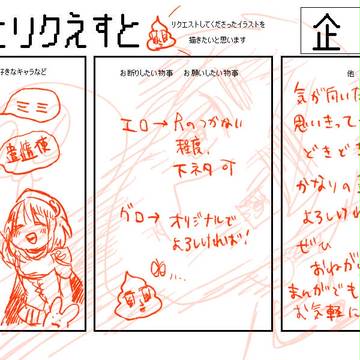 とリクえすと
リクエストしてくださったイラストを
描きたいと思います
企
好きなキャラなど
ミミ
遣使
お断りしたい物事 お願いしたい物事
エロ→Rのつかない
程度！
下ネタ可
グロ→オリジナルで
よろしければ！
他
気が向いた
思いきって
どきどき
かなりの
よろしけれ
ぜひ
おねが
まんがでも
お気軽に